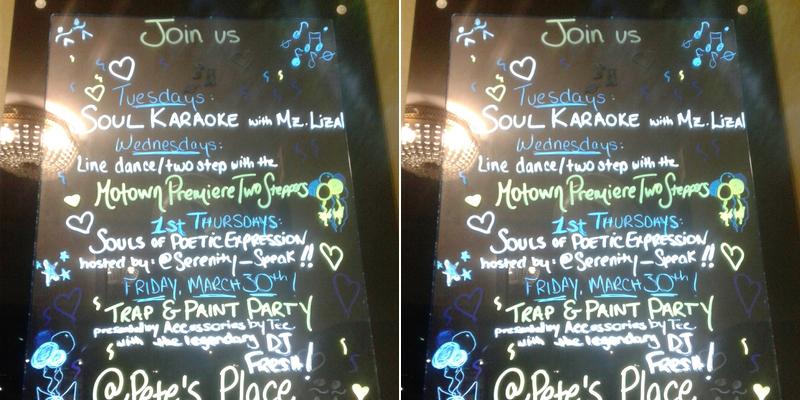 Join us
Tuesdays:
SOUL KARAOKE with Mz. Liza!
Wednesdays:
Line dance/two step with the
Motown Premiere Two Steppers
1st THURSDAYS:
SOULS OF POETIC EXPRESSION
hosted by: @Serenity_Speak!!
FRIDAY, MARCH 30th!
TRAP & PAINT PARTY
presented by Accessories by Tee
with the legendary DJ
FRESH!
@Pete's Place
Join us
Tuesdays:
SOUL KARAOKE with Mz. Liza!
Wednesdays:
Line dance/two step with the
Motown Premiere Two Steppers
1st THURSDAYS:
SOULS OF POETIC EXPRESSION
hosted by: @Serenity_Speak!!
FRIDAY, MARCH 30th!
TRAP & PAINT PARTY
presented by Accessories by Tee
with the legendary DJ
FRESH!
@Pete's Place